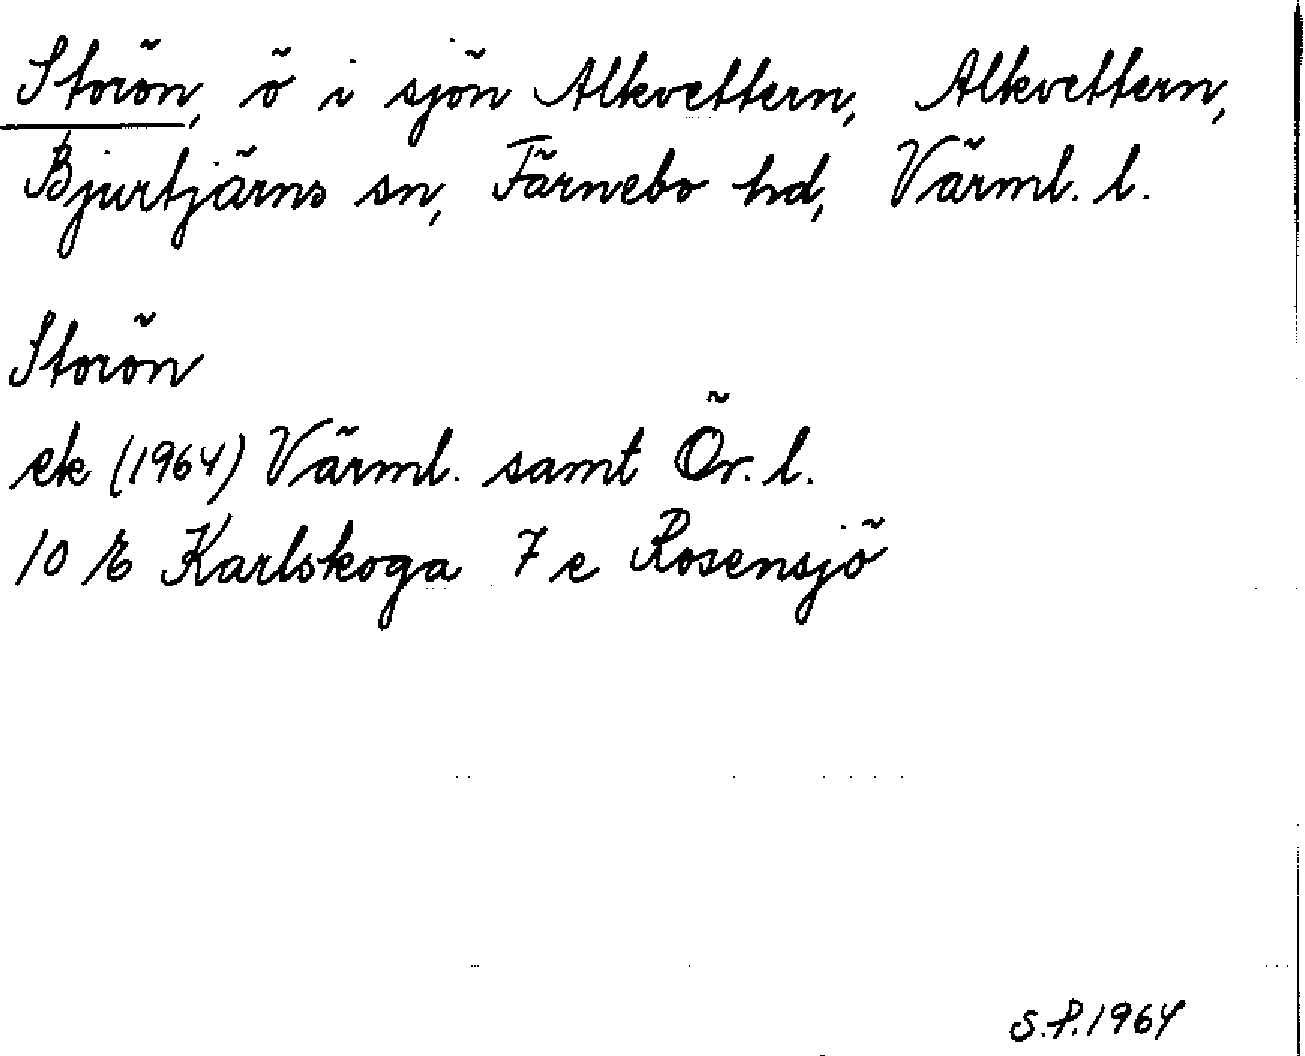 Storön, ö i sjön Alkvettern, Alkvettern,
Bjurtjärns sn, Färnebo hd, Värml. l.
Storön
ek (1964) Värml. samt Ör. l.
10 E Karlskoga 7 e Rosensjö
S.P. 1964